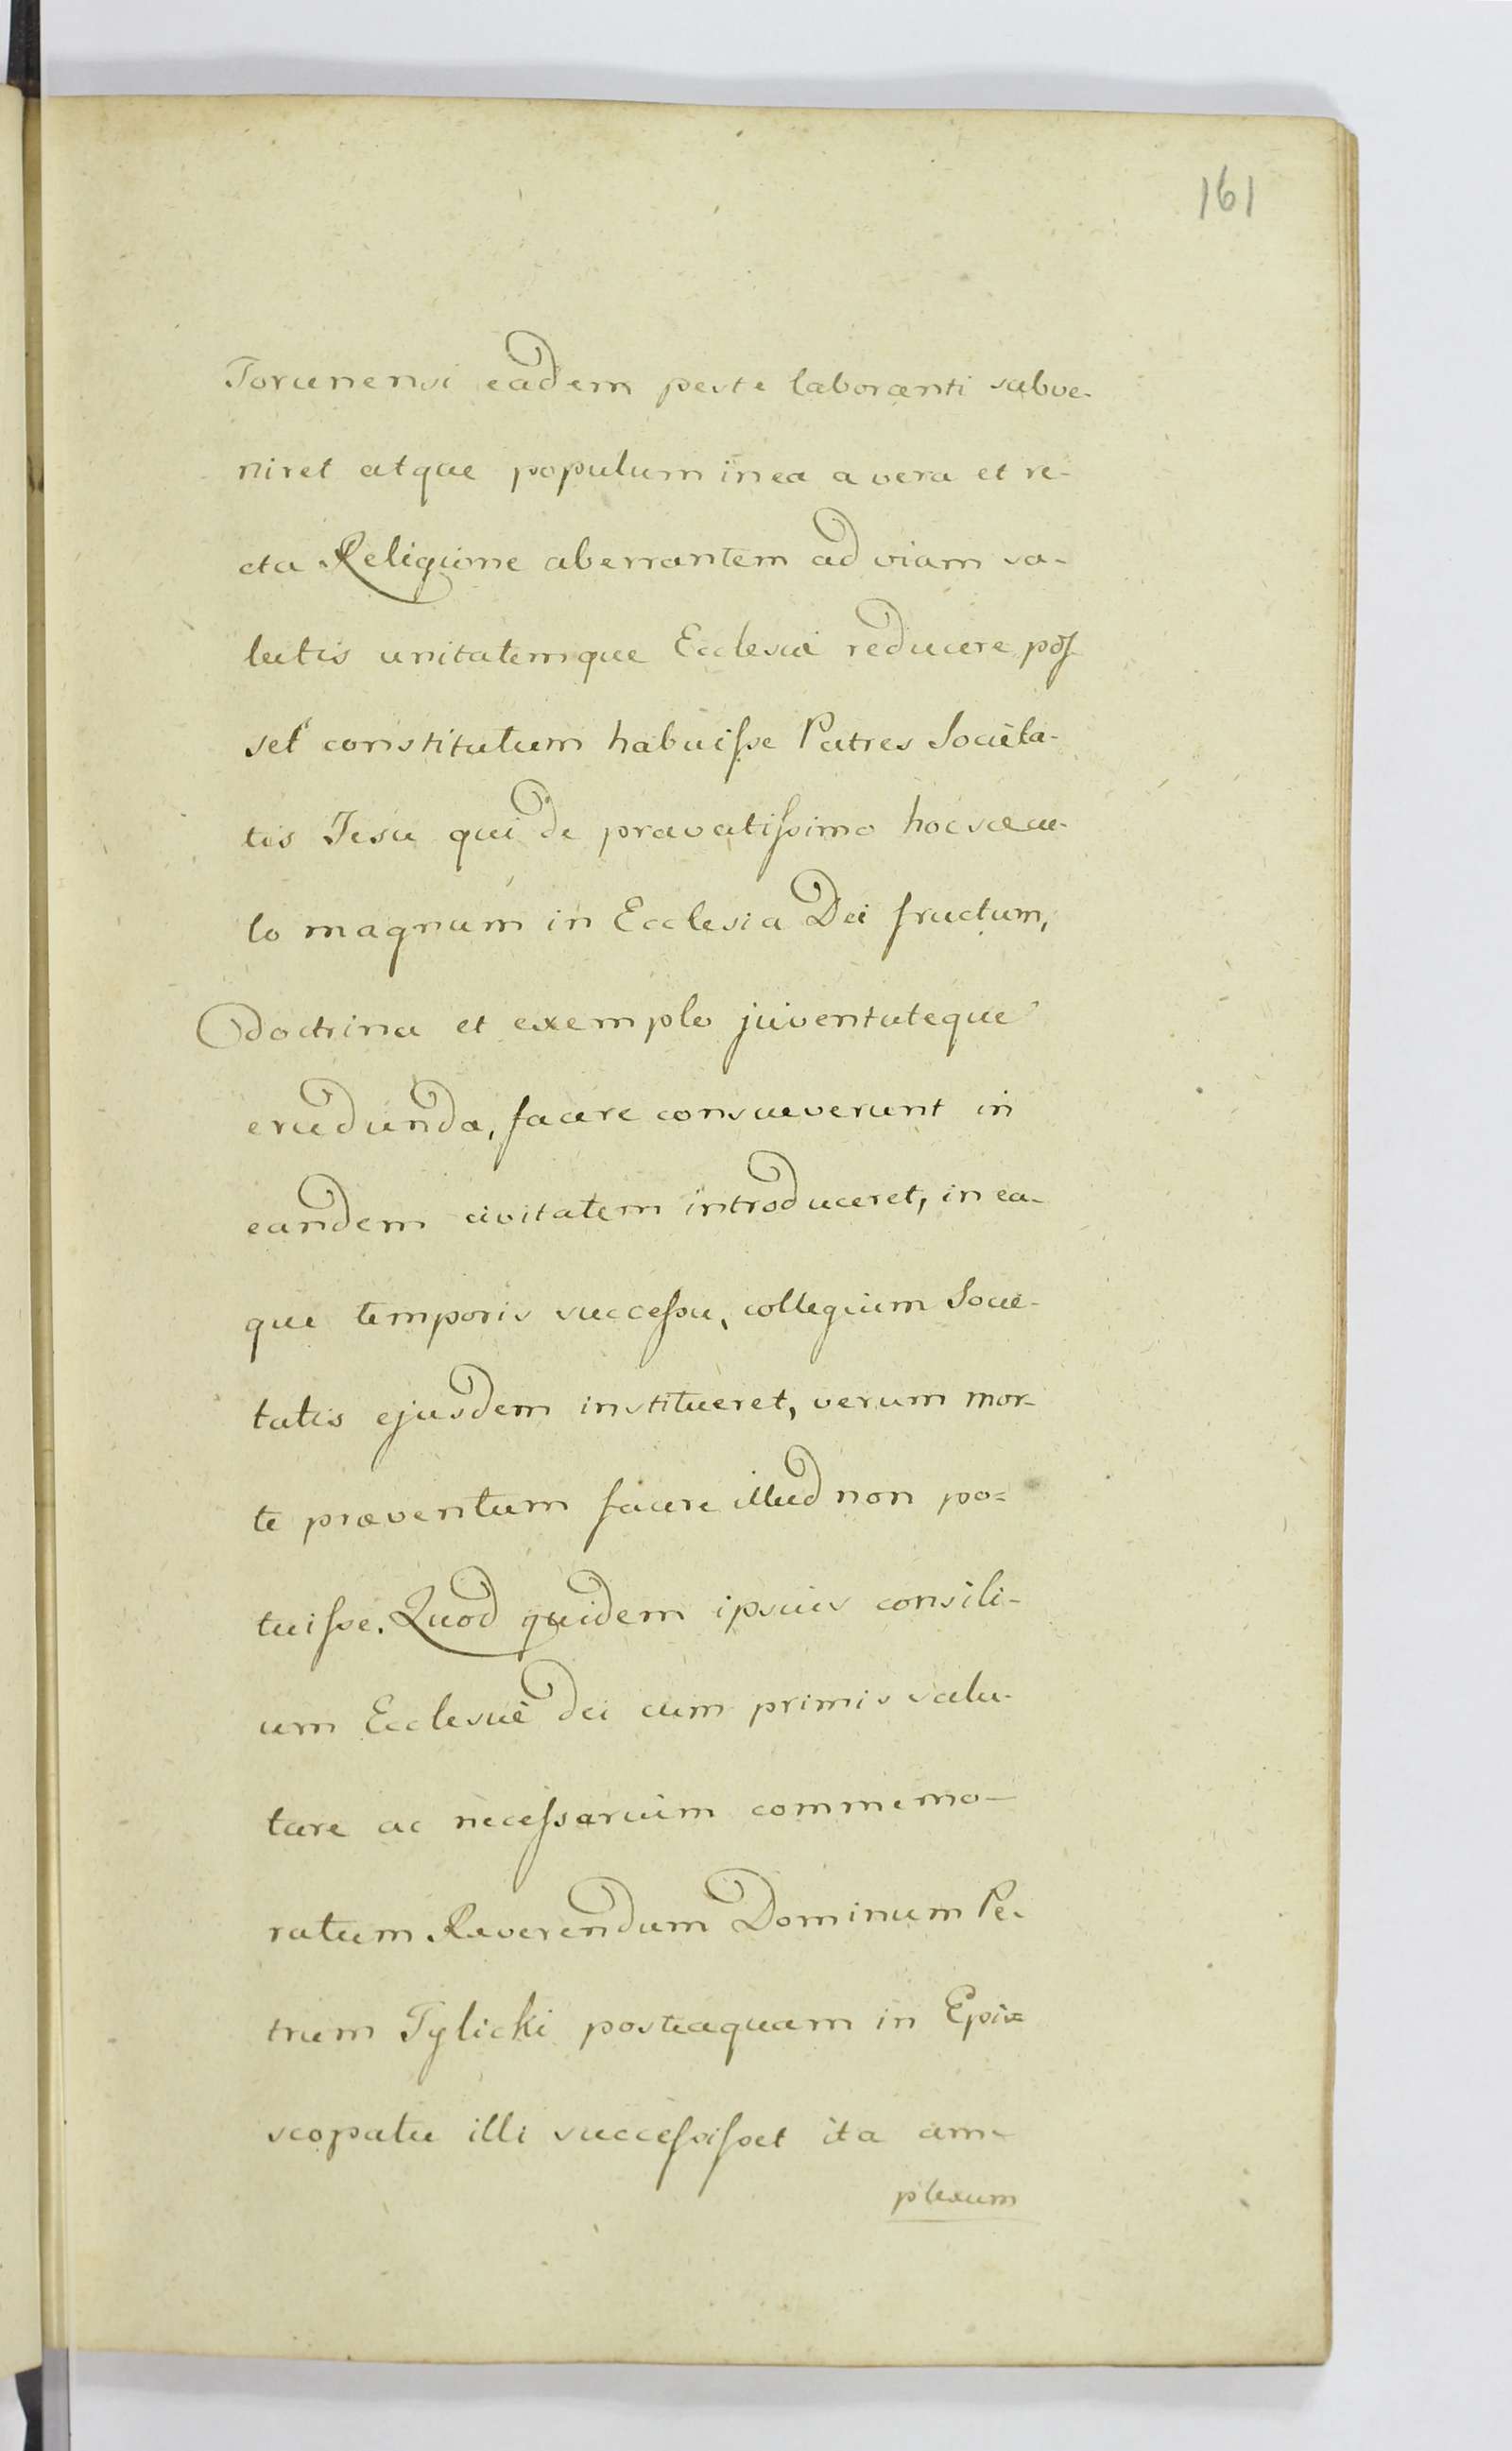 161
Torunensi eadem peste laboranti subve-
niret atque populum in ea a vera et re-
cta Religione aberrantem ad viam sa-
lutis unitatemque Ecclesiæ reducere pos-
set constitutum habuisse Patres Societa-
tis Jesu qui de pravatissimo hoc sæcu-
lo magnum in Ecclesia Dei fructum,
doctrina et exemplo juventuteque
erudiunda, facere consueverunt in
eandem civitatem introduceret, in ea-
que temporis successu, collegium Socie-
tatis ejusdem institueret, verum mor-
te præventum facere illud non po=
tuisse. Quod quidem ipsius consili-
um Ecclesiæ Dei cum primis salu-
tare ac necessarium commemo-
ratum Reverendum Dominum Pe-
trum Tylicki posteaquam in Epi=
scopatu illi successisset ita am-
plexum